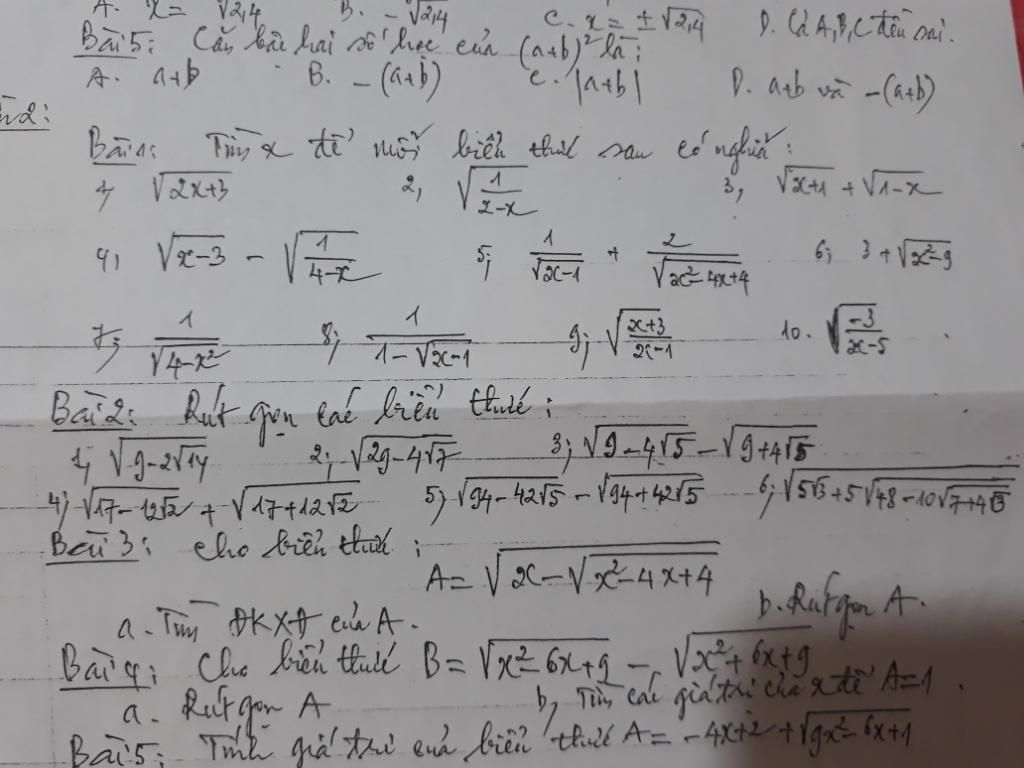 A. x = √2,4 B. -√2,4 C. x = ± √2,4 D. Cả A, B, C đều sai.
Bài 5: Căn bậc hai số học của (a+b)² là:
A. a+b B. -(a+b) C. |a+b| D. a+b và -(a+b)
2:
Bài 1: Tìm x để mỗi biểu thức sau có nghĩa:
1, √(2x+3) 2, √(1/(2-x)) 3, √(x+1) + √(1-x)
4, √(x-3) - √(1/(4-x)) 5; 1/√(x-1) + 2/√(x²-4x+4) 6; 3 + √(x²-9)
7; 1/√(4-x²) 8; 1/(1-√(x-1)) 9; √((x+3)/(x-1)) 10. √(-3/(x-5))
Bài 2: Rút gọn các biểu thức:
1; √(9-2√14) 2; √(29-4√7) 3; √(9-4√5) - √(9+4√5)
4; √(17-12√2) + √(17+12√2) 5; √(94-42√5) - √(94+42√5) 6; √(5√3+5√(48-10√(7+4√3)))
Bài 3: cho biểu thức:
A = √(x-√(x²-4x+4))
a. Tìm ĐKXĐ của A. b. Rút gọn A.
Bài 4: Cho biểu thức B = √(x²-6x+9) - √(x²+6x+9)
a. Rút gọn A b, Tìm các giá trị của x để A=1.
Bài 5: Tính giá trị của biểu thức A = -4x+2+√(9x²-6x+1)